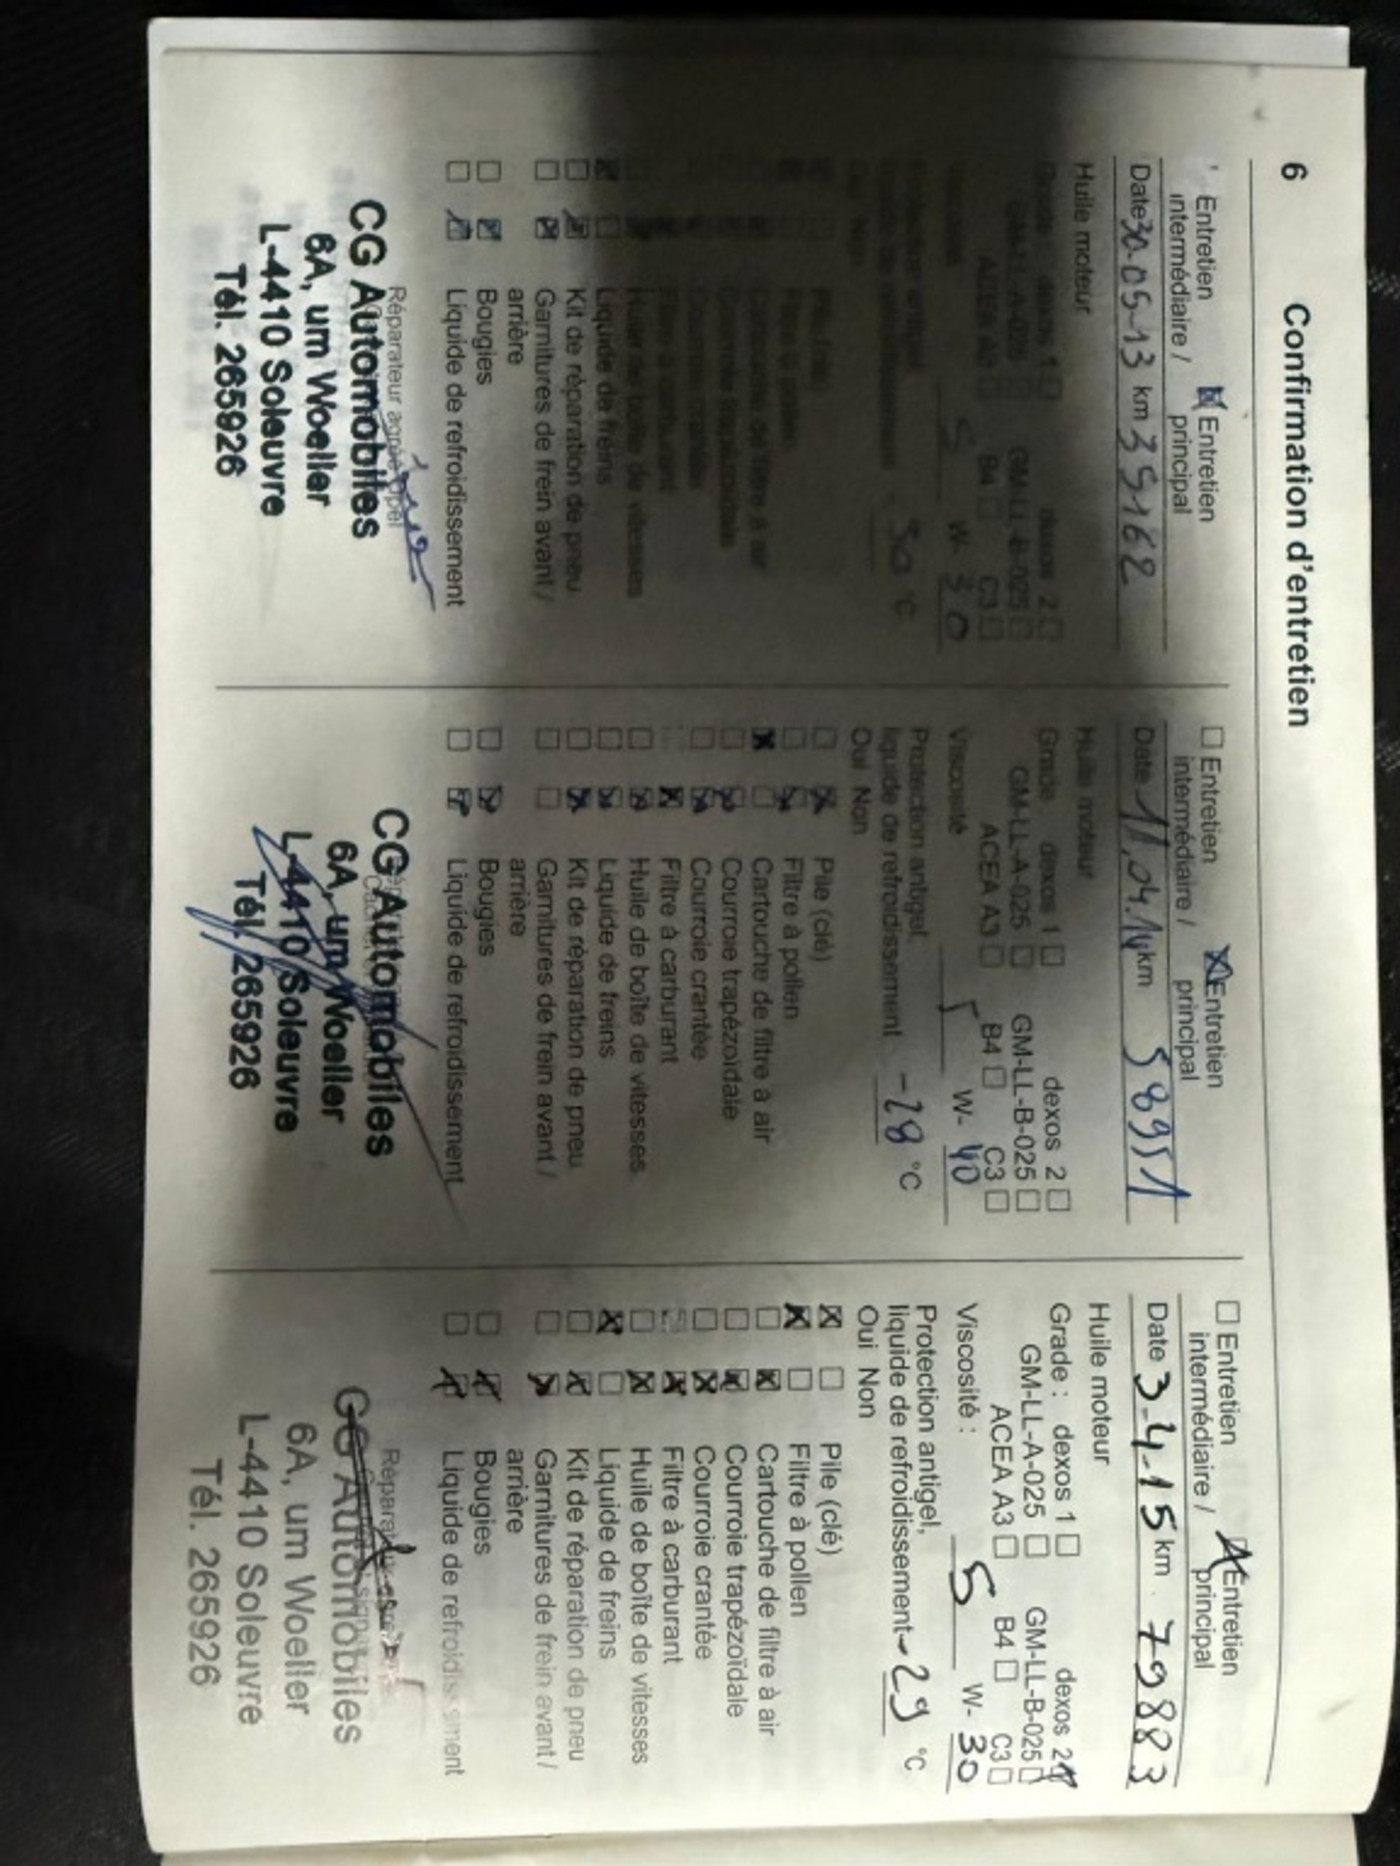 6 Confirmation d'entretien
Entretien intermédiaire / Entretien principal
Date 30.05-13 km 35162
Huile moteur
Grade dexos 1 dexos 2
GM-LL-A-025 GM-LL-B-025
ACEA A3 B4 C3
Viscosité 5 W- 30
Protection antigel,
liquide de refroidissement 30 °C
Oui Non
Pile (clé)
Filtre à pollen
Cartouche de filtre à air
Courroie trapézoïdale
Courroie crantée
Filtre à carburant
Huile de boîte de vitesses
Liquide de freins
Kit de réparation de pneu
Garnitures de frein avant /
arrière
Bougies
Liquide de refroidissement
Réparateur agréé Opel
CG Automobiles
6A, um Woeller
L-4410 Soleuvre
Tél. 265926
Entretien intermédiaire / Entretien principal
Date 11.04.14 km 58951
Huile moteur
Grade dexos 1 dexos 2
GM-LL-A-025 GM-LL-B-025
ACEA A3 B4 C3
Viscosité 5 W- 40
Protection antigel,
liquide de refroidissement -28 °C
Oui Non
Pile (clé)
Filtre à pollen
Cartouche de filtre à air
Courroie trapézoïdale
Courroie crantée
Filtre à carburant
Huile de boîte de vitesses
Liquide de freins
Kit de réparation de pneu
Garnitures de frein avant /
arrière
Bougies
Liquide de refroidissement
CG Automobiles
6A, um Woeller
L-4410 Soleuvre
Tél. 265926
Entretien intermédiaire / Entretien principal
Date 3-4-15 km 79883
Huile moteur
Grade : dexos 1 dexos 2
GM-LL-A-025 GM-LL-B-025
ACEA A3 B4 C3
Viscosité : 5 W- 30
Protection antigel,
liquide de refroidissement -29 °C
Oui Non
Pile (clé)
Filtre à pollen
Cartouche de filtre à air
Courroie trapézoïdale
Courroie crantée
Filtre à carburant
Huile de boîte de vitesses
Liquide de freins
Kit de réparation de pneu
Garnitures de frein avant /
arrière
Bougies
Liquide de refroidissement
CG Automobiles
6A, um Woeller
L-4410 Soleuvre
Tél. 265926